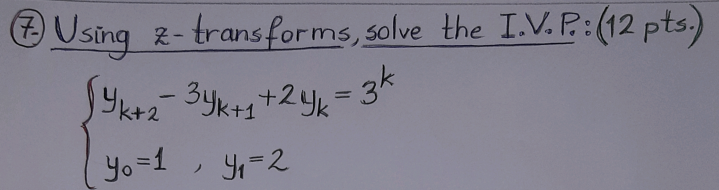 7. Using z-transforms, solve the I.V.P.: (12 pts.)
y_{k+2} - 3y_{k+1} + 2y_k = 3^k
y_0 = 1 , y_1 = 2